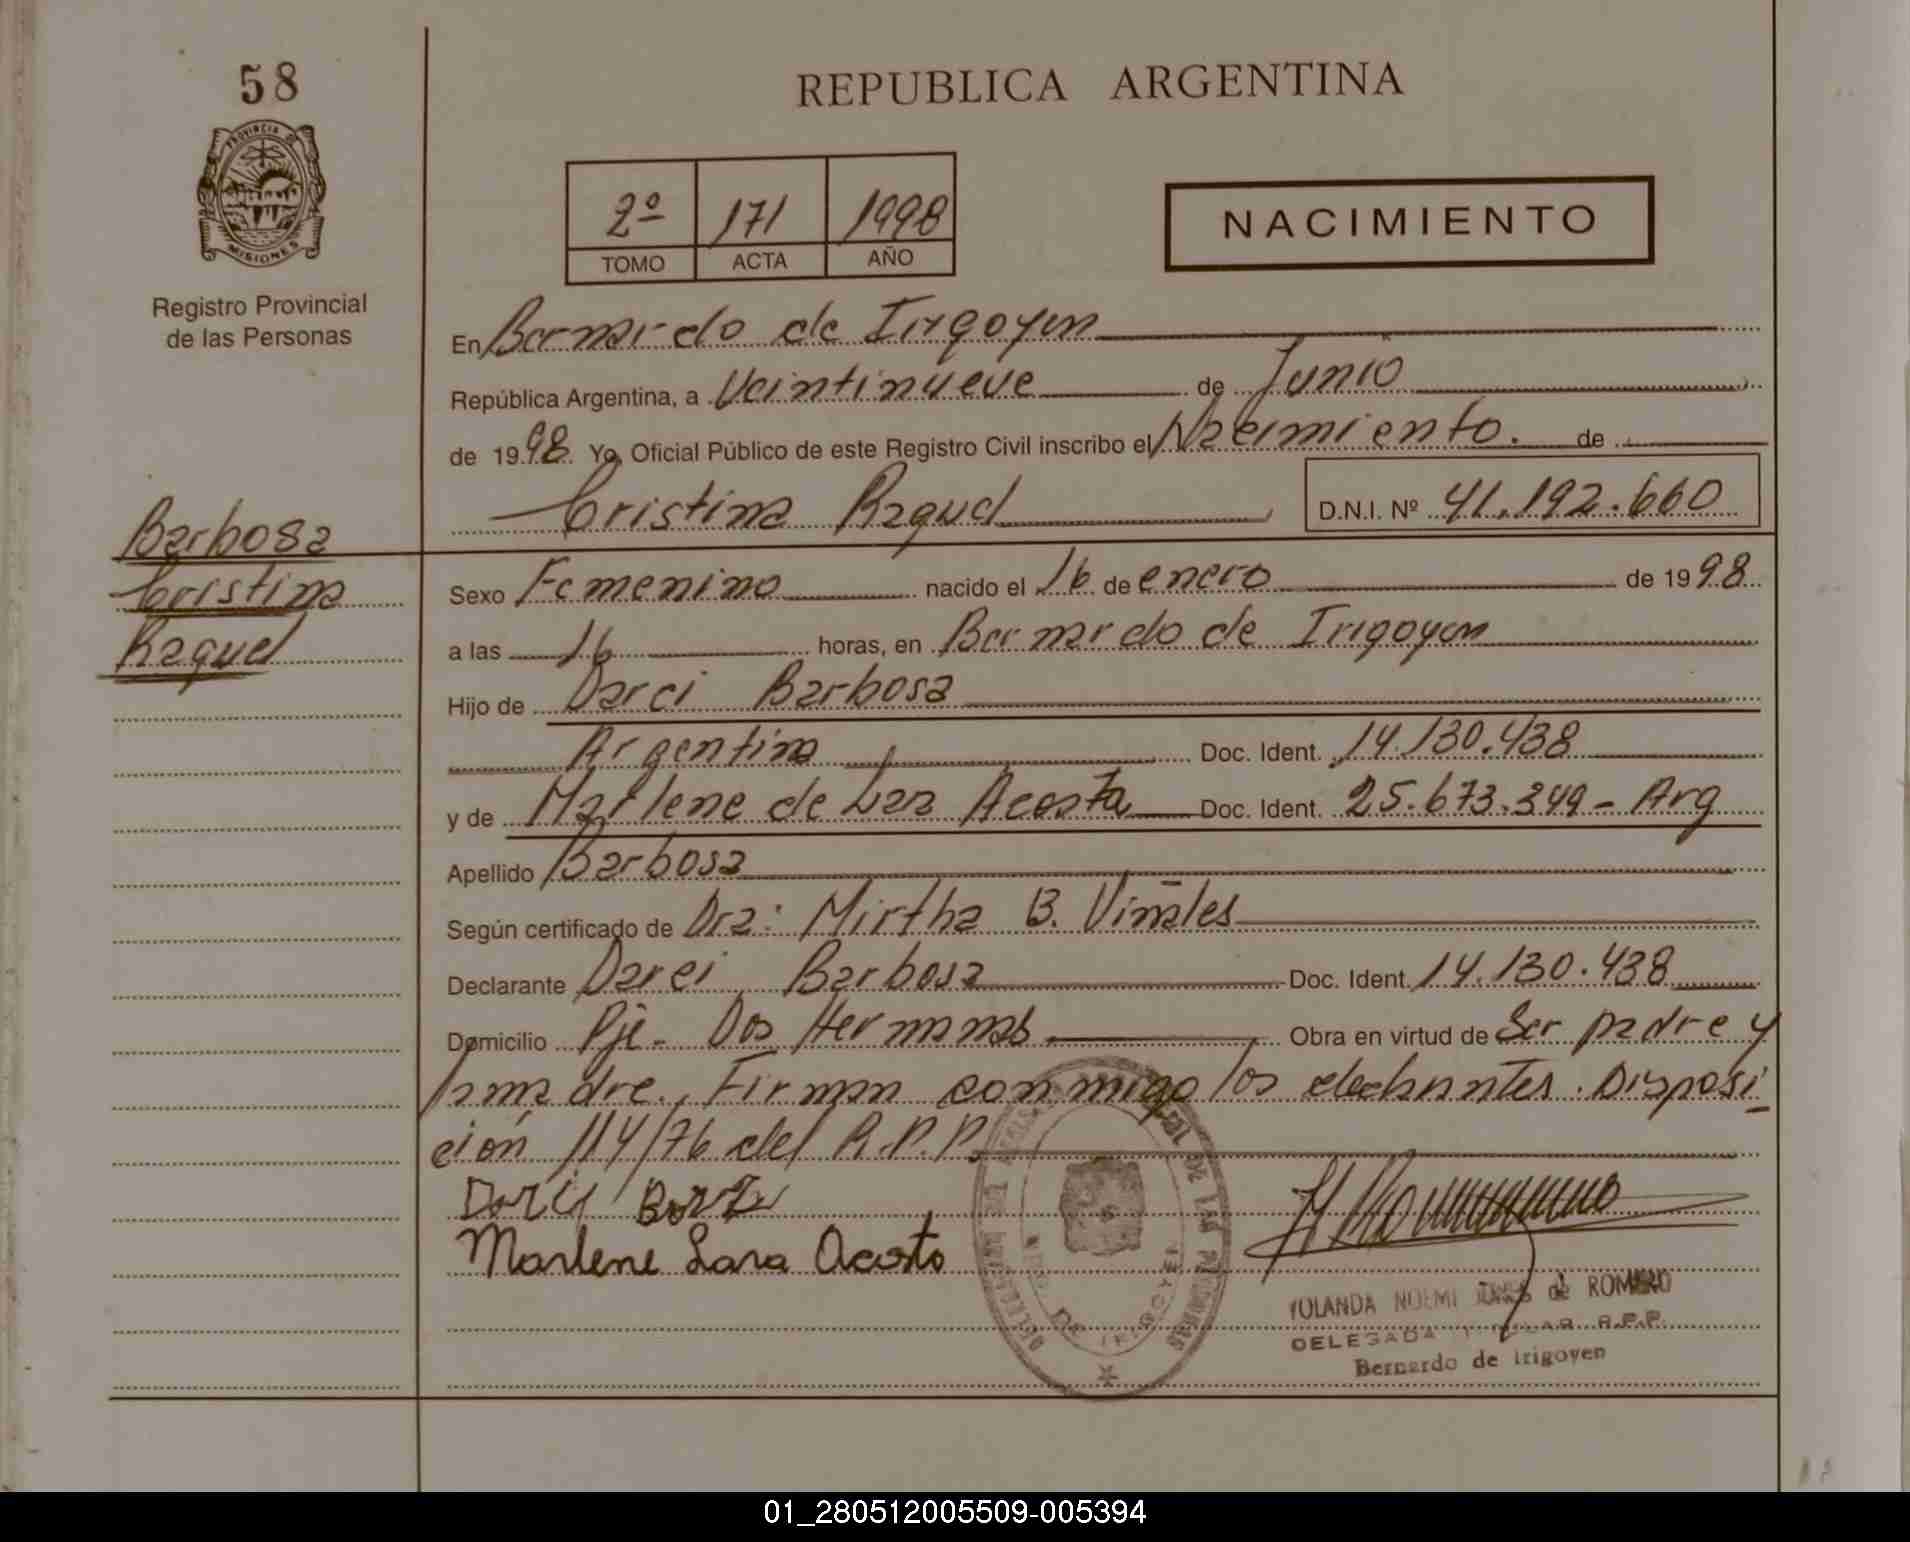 58
REPUBLICA ARGENTINA
PROVINCIA DE
MISIONES
Registro Provincial
de las Personas
2º 171 1998
TOMO ACTA AÑO
NACIMIENTO
En Bernardo de Irigoyen
República Argentina, a Veintinueve de Junio
de 1998 Yo Oficial Público de este Registro Civil inscribo el Nacimiento. de
Cristina Raquel D.N.I. Nº 41.192.660
Barbosa
Cristina
Raquel
Sexo Femenino nacido el 16 de enero de 1998
a las 16 horas, en Bernardo de Irigoyen
Hijo de Darci Barbosa
Argentina Doc. Ident. 14.130.438
y de Marlene de Lara Acosta Doc. Ident. 25.673.349 - Arg
Apellido Barbosa
Según certificado de Dra: Mirtha B. Viñales
Declarante Darci Barbosa Doc. Ident. 14.130.438
Domicilio Pje. Dos Hermanas Obra en virtud de Ser padre y
madre. Firman conmigo los declarantes. Disposi
ción 114/76 del R.P.P.
Marlene Lara Acosta
YOLANDA NOEMI de ROMERO
DELEGADA TITULAR R.P.P.
Bernardo de Irigoyen
DE LAS PERSONAS
DE IRIGOYEN
01_280512005509-005394